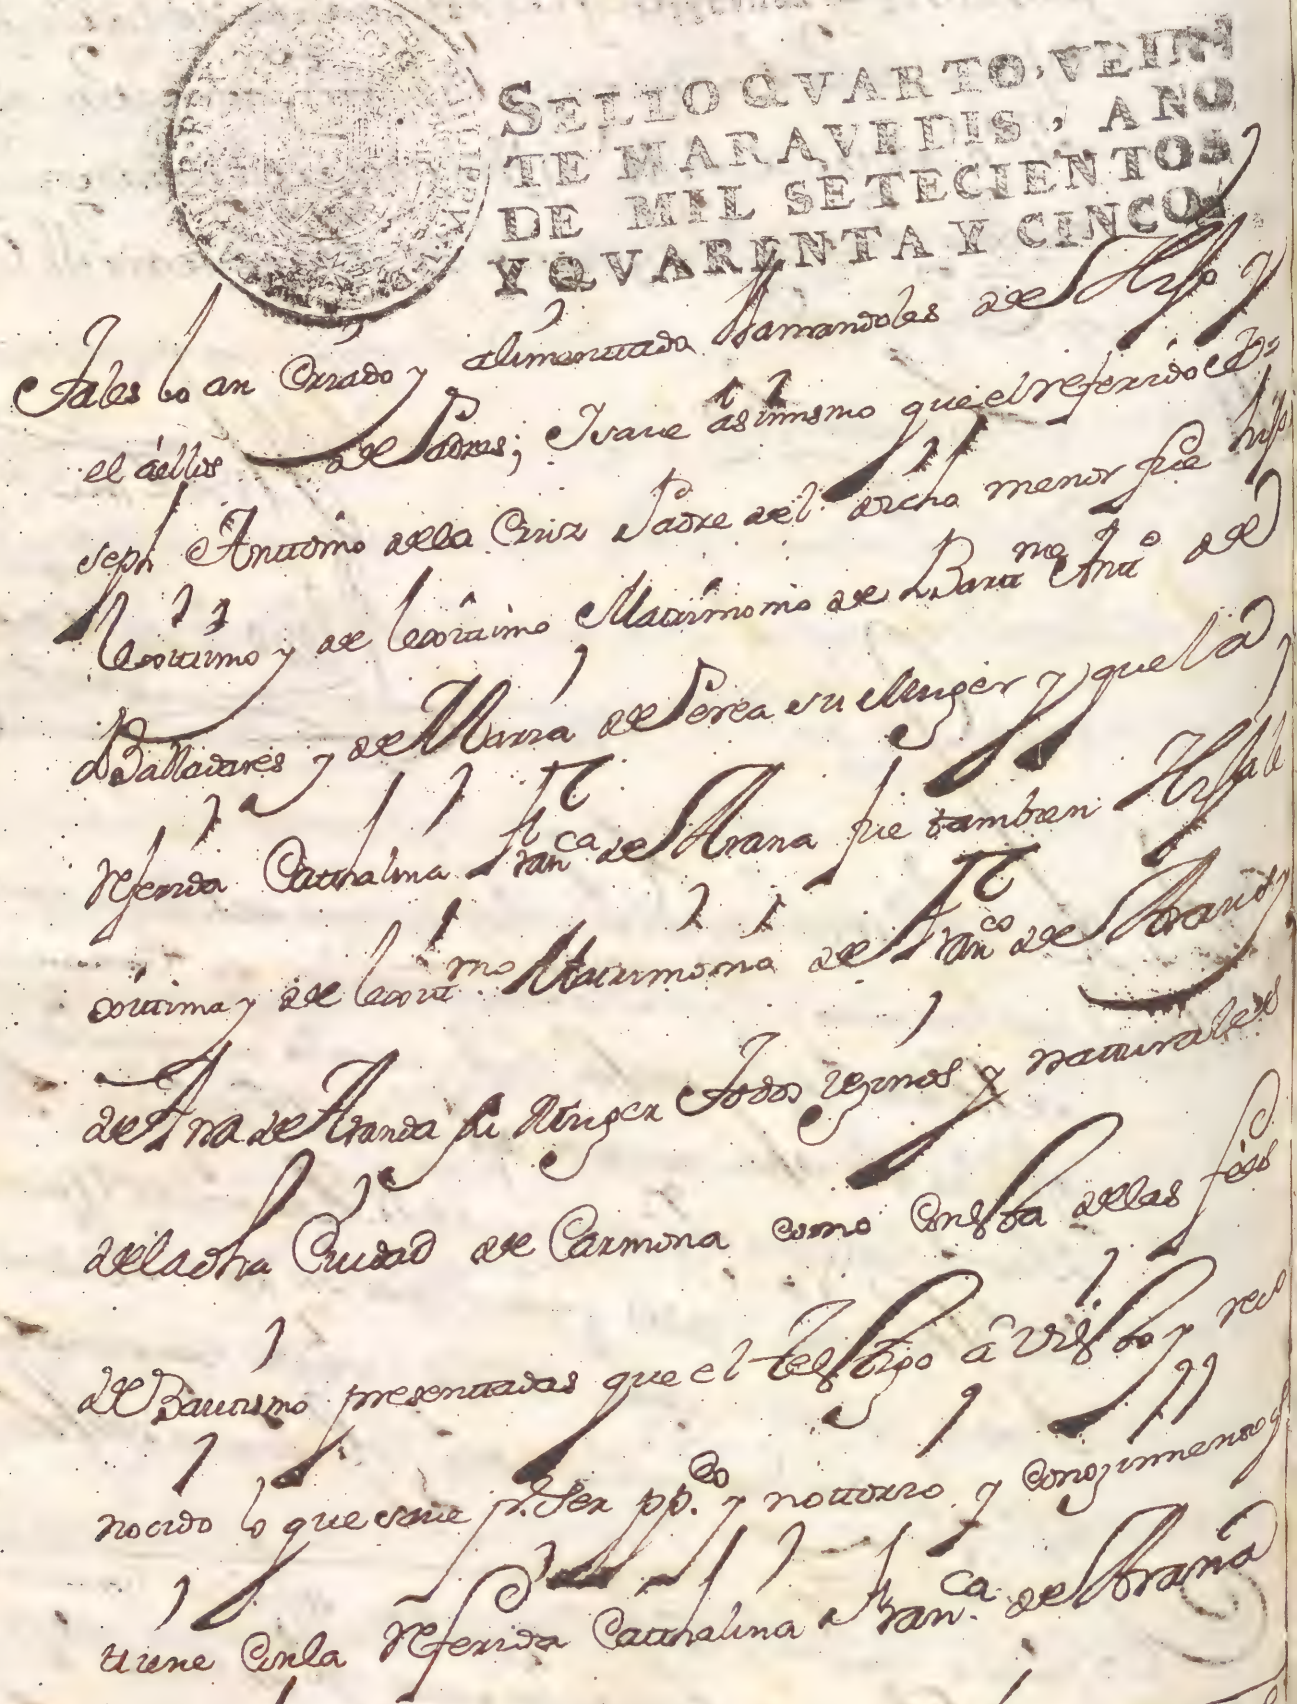 SELLO QVARTO, VEIN
TE MARAVEDIS, AÑO
DE MIL SETECIENTOS
Y QVARENTA Y CINCO.
tales lo an Criado y alimenttado llamandoles de Hijo y
el a ellos de Padres; I save asimismo que el referido Jo
seph Anttonio de la Cruz Padre del dicho menor fue hijo
lexittimo y de lexittimo Mattrimonio de Bartt.me Antt.o de
Balladares y de Maria de Perea su Muger y que la
referida Catthalina Fran.ca de Arana fue tambien Hija le
xittima y de lexitt.mo Mattrimonio de Fran.co de Arana y
de Ana de Aranda su Muger todos vezinos y natturales
de la dha Ciudad de Carmona como Consta de las fees
de Bauttismo presenttadas que el testigo a visto y reco
nocido lo que save p.r ser pp.co y nottorio y conozimiento q.
ttiene Con la referida Catthalina Fran.ca de Arana